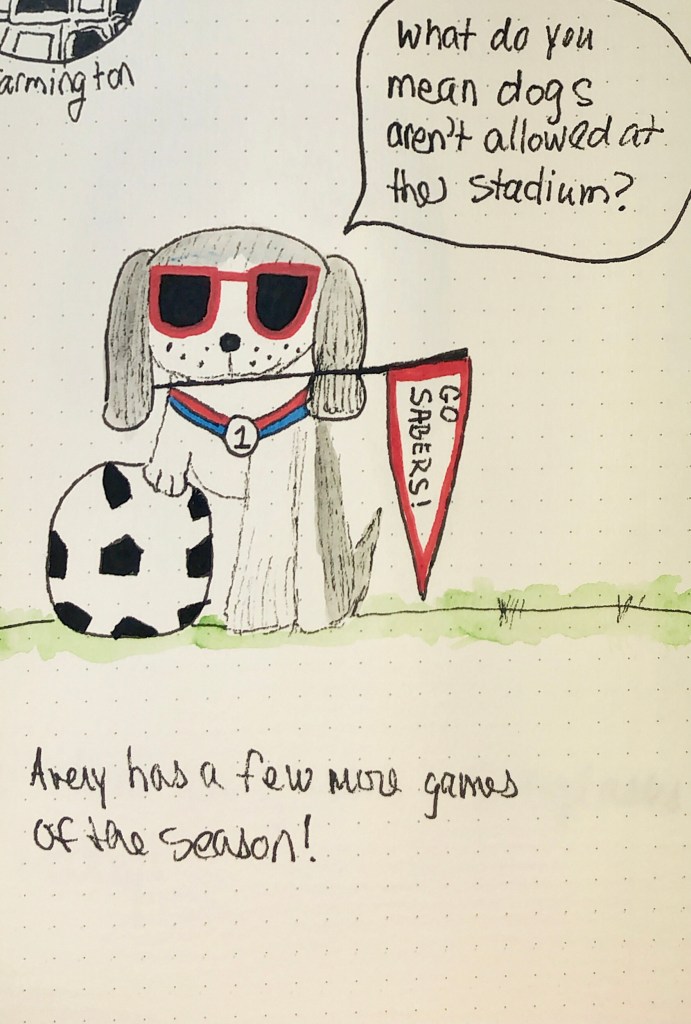 armington
What do you
mean dogs
aren't allowed at
the stadium?
1
GO
SABERS!
Avery has a few more games
of the season!